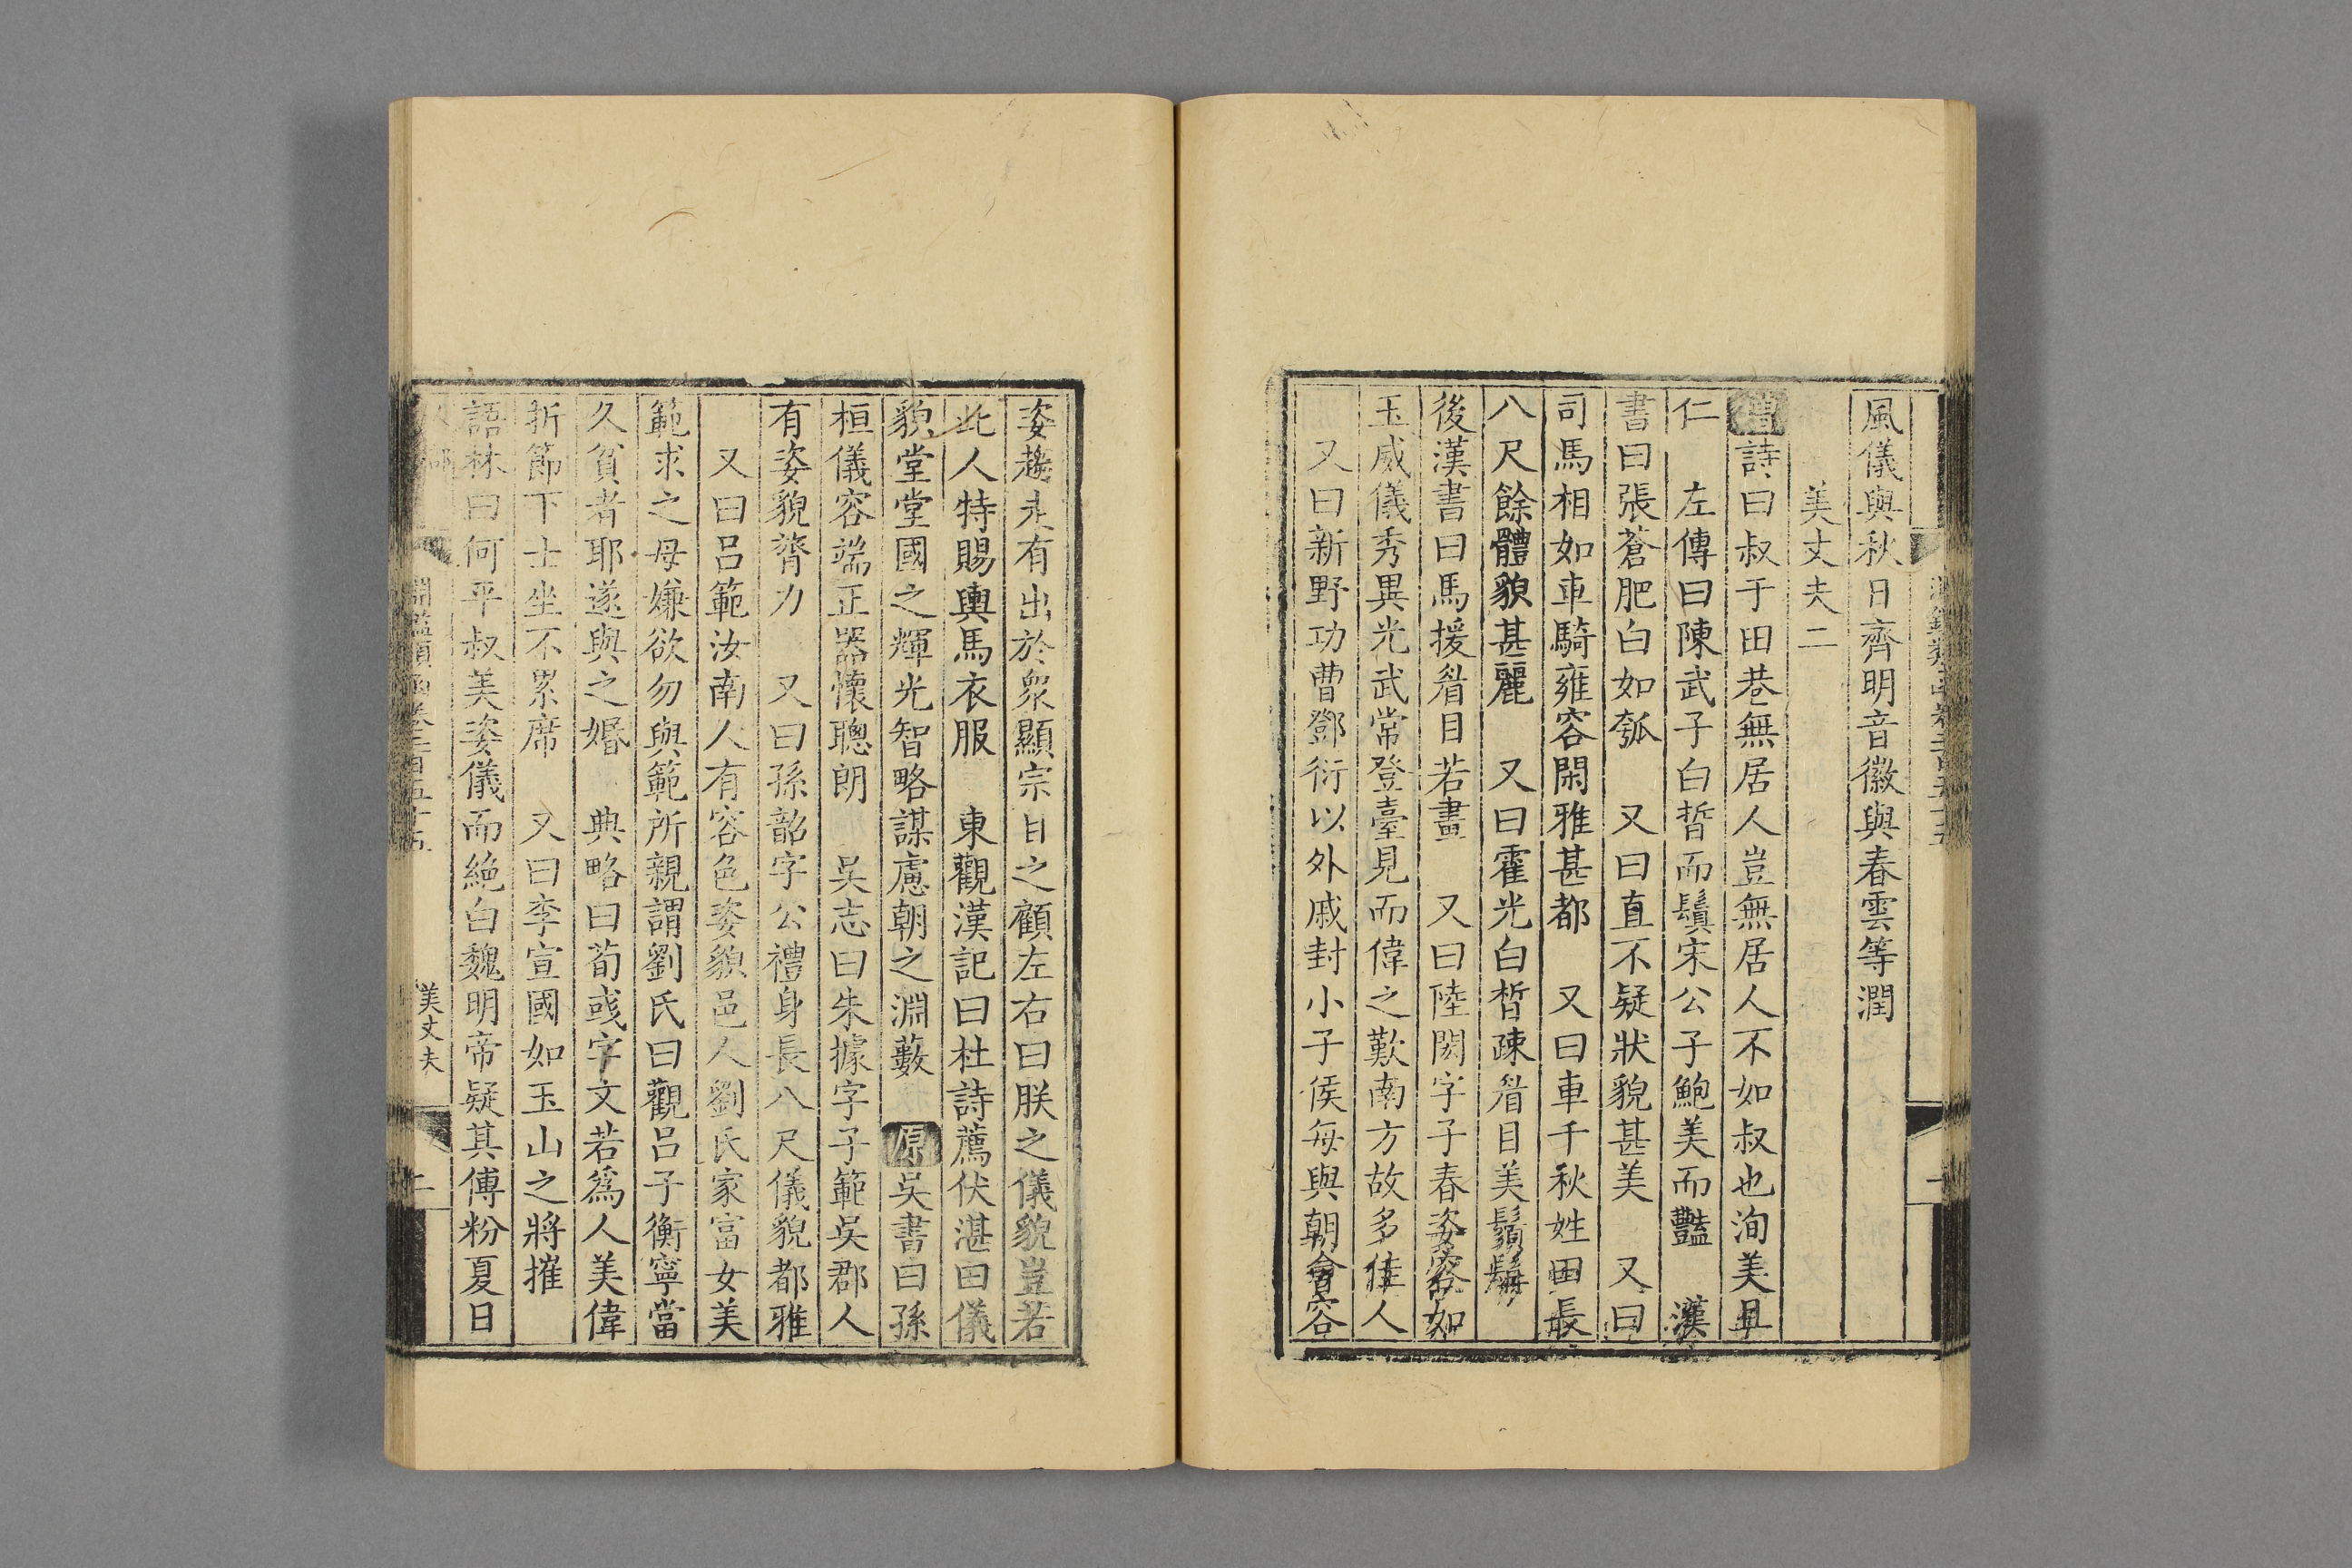 風儀與秋日齊明音徽與春雲等潤
美丈夫二
增詩曰叔于田巷無居人豈無居人不如叔也洵美且
仁 左傳曰陳武子白晳而鬒宋公子鮑美而豔 漢
書曰張蒼肥白如瓠 又曰直不疑狀貌甚美 又曰
司馬相如車騎雍容閑雅甚都 又曰車千秋姓田長
八尺餘體貌甚麗 又曰霍光白晳疎眉目美鬚髯
後漢書曰馬援眉目若畫 又曰陸閎字子春姿容如
玉威儀秀異光武常登臺見而偉之歎南方故多佳人
又曰新野功曹鄧衍以外戚封小子侯每與朝會容
姿趨走有出於衆顯宗目之顧左右曰朕之儀貌豈若
此人特賜輿馬衣服 東觀漢記曰杜詩薦伏湛曰儀
貌堂堂國之輝光智略謀慮朝之淵藪 原吳書曰孫
桓儀容端正器懷聰朗 吳志曰朱據字子範吳郡人
有姿貌膂力 又曰孫韶字公禮身長八尺儀貌都雅
又曰呂範汝南人有容色姿貌邑人劉氏家富女美
範求之母嫌欲勿與範所親謂劉氏曰觀呂子衡寧當
久貧者耶遂與之婚 典略曰荀彧字文若爲人美偉
折節下士坐不累席 又曰李宣國如玉山之將摧
語林曰何平叔美姿儀而絶白魏明帝疑其傅粉夏日
淵鑑類函卷二百五十五
美丈夫
二